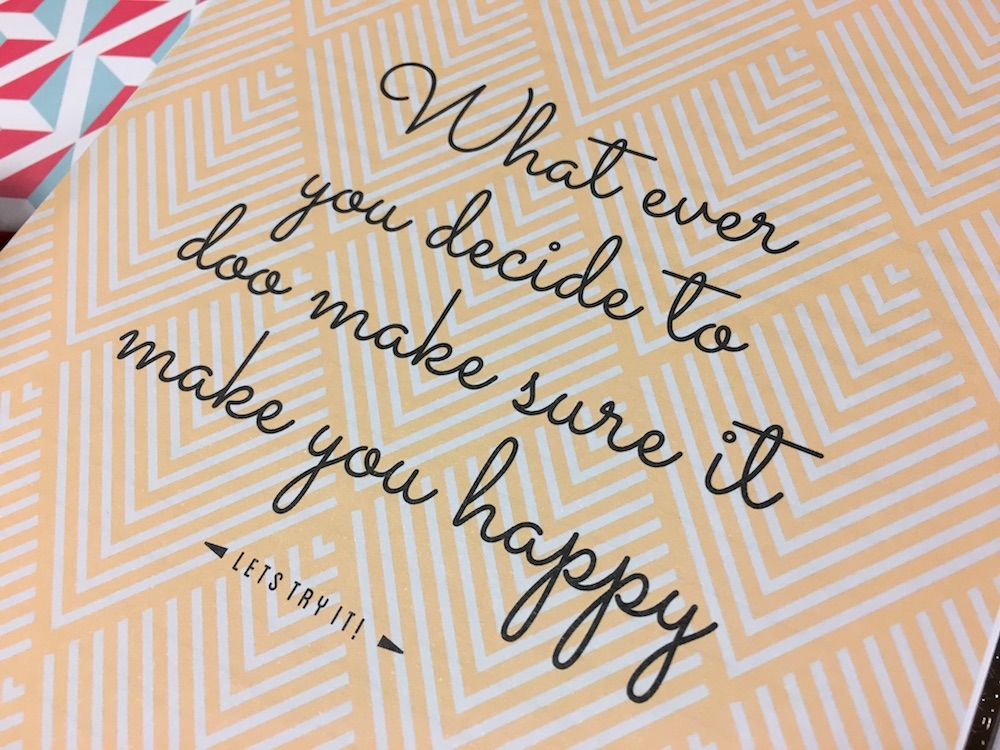 What ever
you decide to
doo make sure it
make you happy
LETS TRY IT!